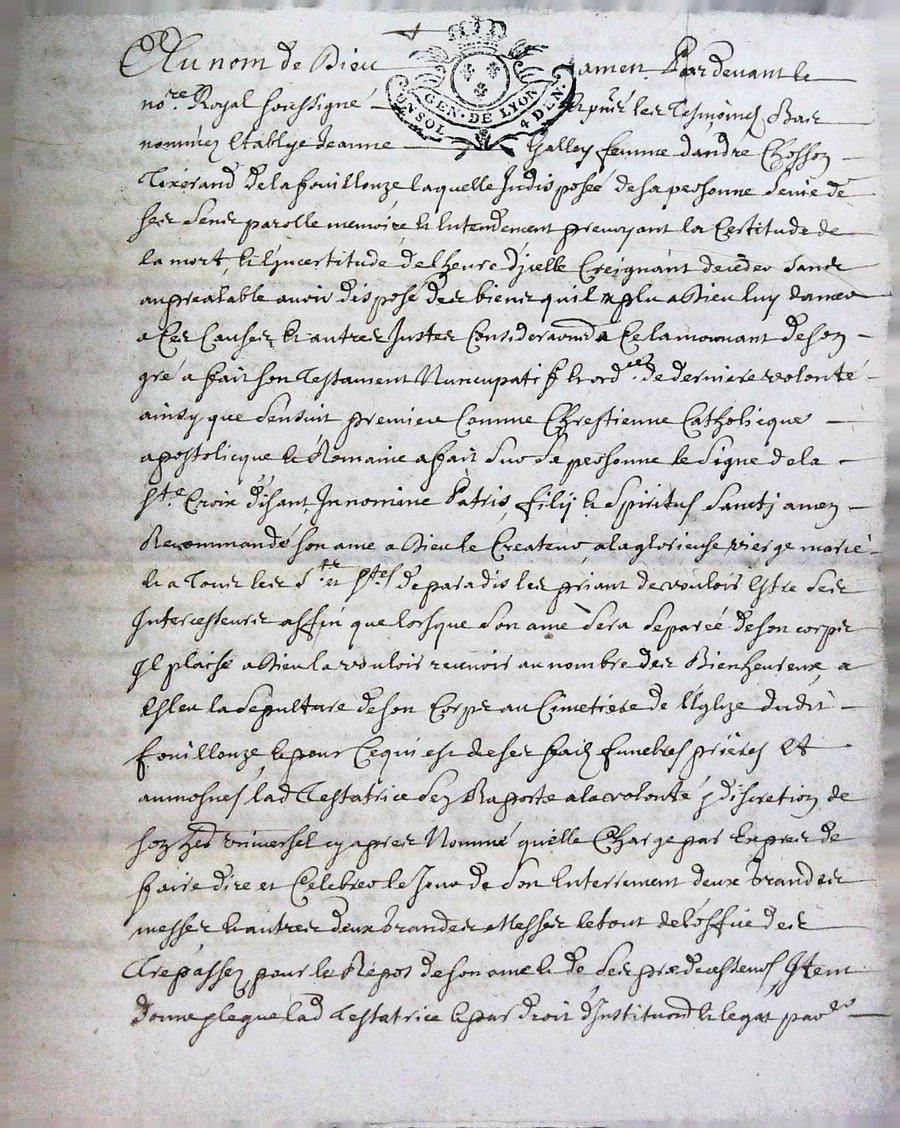 Au nom de Dieu amen Pardevant le
UN SOL GEN · DE LYON 4 DEN
nore Royal soussigné & pnts les Tesmoings Bas
nommez Establye Jeanne Galley femme dandre Chosson
Tixerand de la fouillouze laquelle Indisposée de sa personne Saine de
ses Sens parolle memoire & Entendement prevoyant la Certitude de
la mort, & lincertitude de lheure dicelle Creignant deceder sans
au prealable avoir disposé des biens quil a plu a Dieu luy donner
a Ces Causes & autres Justes Considerations a Ce la mouvant de son
gré a fait son Testament Nuncupatif & ordce de derniere volonté
ainsy que sensuit premier Comme Chrestienne Catholicque
apostolicque & Romaine a fait sur sa personne le Signe de la
Ste Croix disant In nomine Patris, filij & Spiritus Sancti amen
Recommandé son ame a Dieu le Createur, a la glorieuse vierge marie
& a Tous les Sts et Stes de paradis les priant de vouloir Estre Ses
Intercesseurs affin que lorsque Son ame Sera Separée de son corps
Il plaise a Dieu la vouloir recevoir au nombre des Bienheureux, a
Esleu la Sepulture de son Corps au Cimetiere de l'Eglize dudit
fouillouze, & pour Ce qui est de ses frais funebres prieres Et
aumosnes lad Testatrice sen Raporte a la volonté & discretion de
son her universel cy apres Nommé quelle Charge par Expres de
faire dire et Celebrer le Jour de Son Enterrement deux Grandes
messes & autres deux Grandes Messes le tout de loffice des
Trepassez pour le Repos de son ame & de Ses predecesseurs, Item
donne legue lad Testatrice & par droit d'Institution & legat par